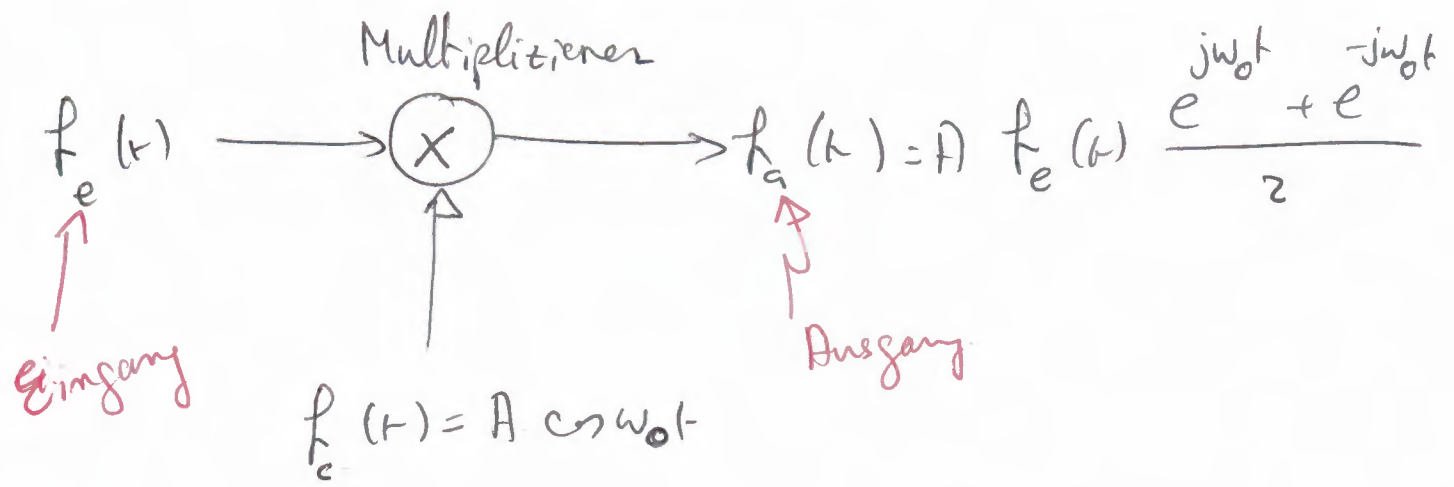 Multiplizierer
f_e (t) → X → f_a (t) = A f_e (t) (e^{jω_0t} + e^{-jω_0t}) / 2
Eingang
Ausgang
f_c (t) = A cos ω_0t